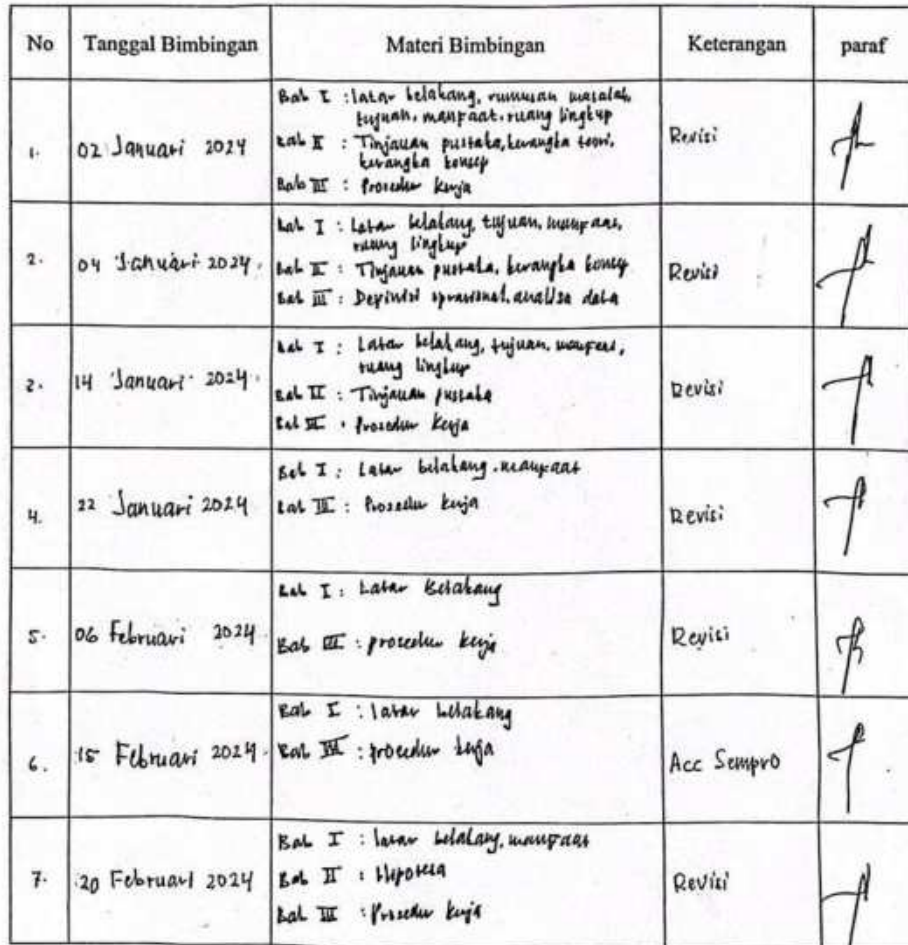 No Tanggal Bimbingan Materi Bimbingan Keterangan paraf
1. 02 Januari 2024 Revisi
Bab I : latar belakang, rumusan masalah,
tujuan, manfaat, ruang lingkup
Bab II : Tinjauan pustaka, kerangka teori,
kerangka konsep
Bab III : Prosedur kerja
2. 04 Januari 2024. Revisi
Bab I : Latar belakang, tujuan, manfaat,
ruang lingkup
Bab II : Tinjauan pustaka, kerangka konsep
Bab III : Definisi oprasional, analisa data
2. 14 Januari 2024. Revisi
Bab I : Latar belakang, tujuan, manfaat,
ruang lingkup
Bab II : Tinjauan pustaka
Bab III : Prosedur kerja
4. 22 Januari 2024 Revisi
Bab I : Latar belakang, manfaat
Bab III : Prosedur kerja
5. 06 Februari 2024 Revisi
Bab I : Latar Belakang
Bab III : prosedur kerja
6. 15 Februari 2024. Acc Sempro
Bab I : latar belakang
Bab III : prosedur kerja
7. 20 Februari 2024 Revisi
Bab I : latar belakang, manfaat
Bab II : Hipotesa
Bab III : Prosedur kerja